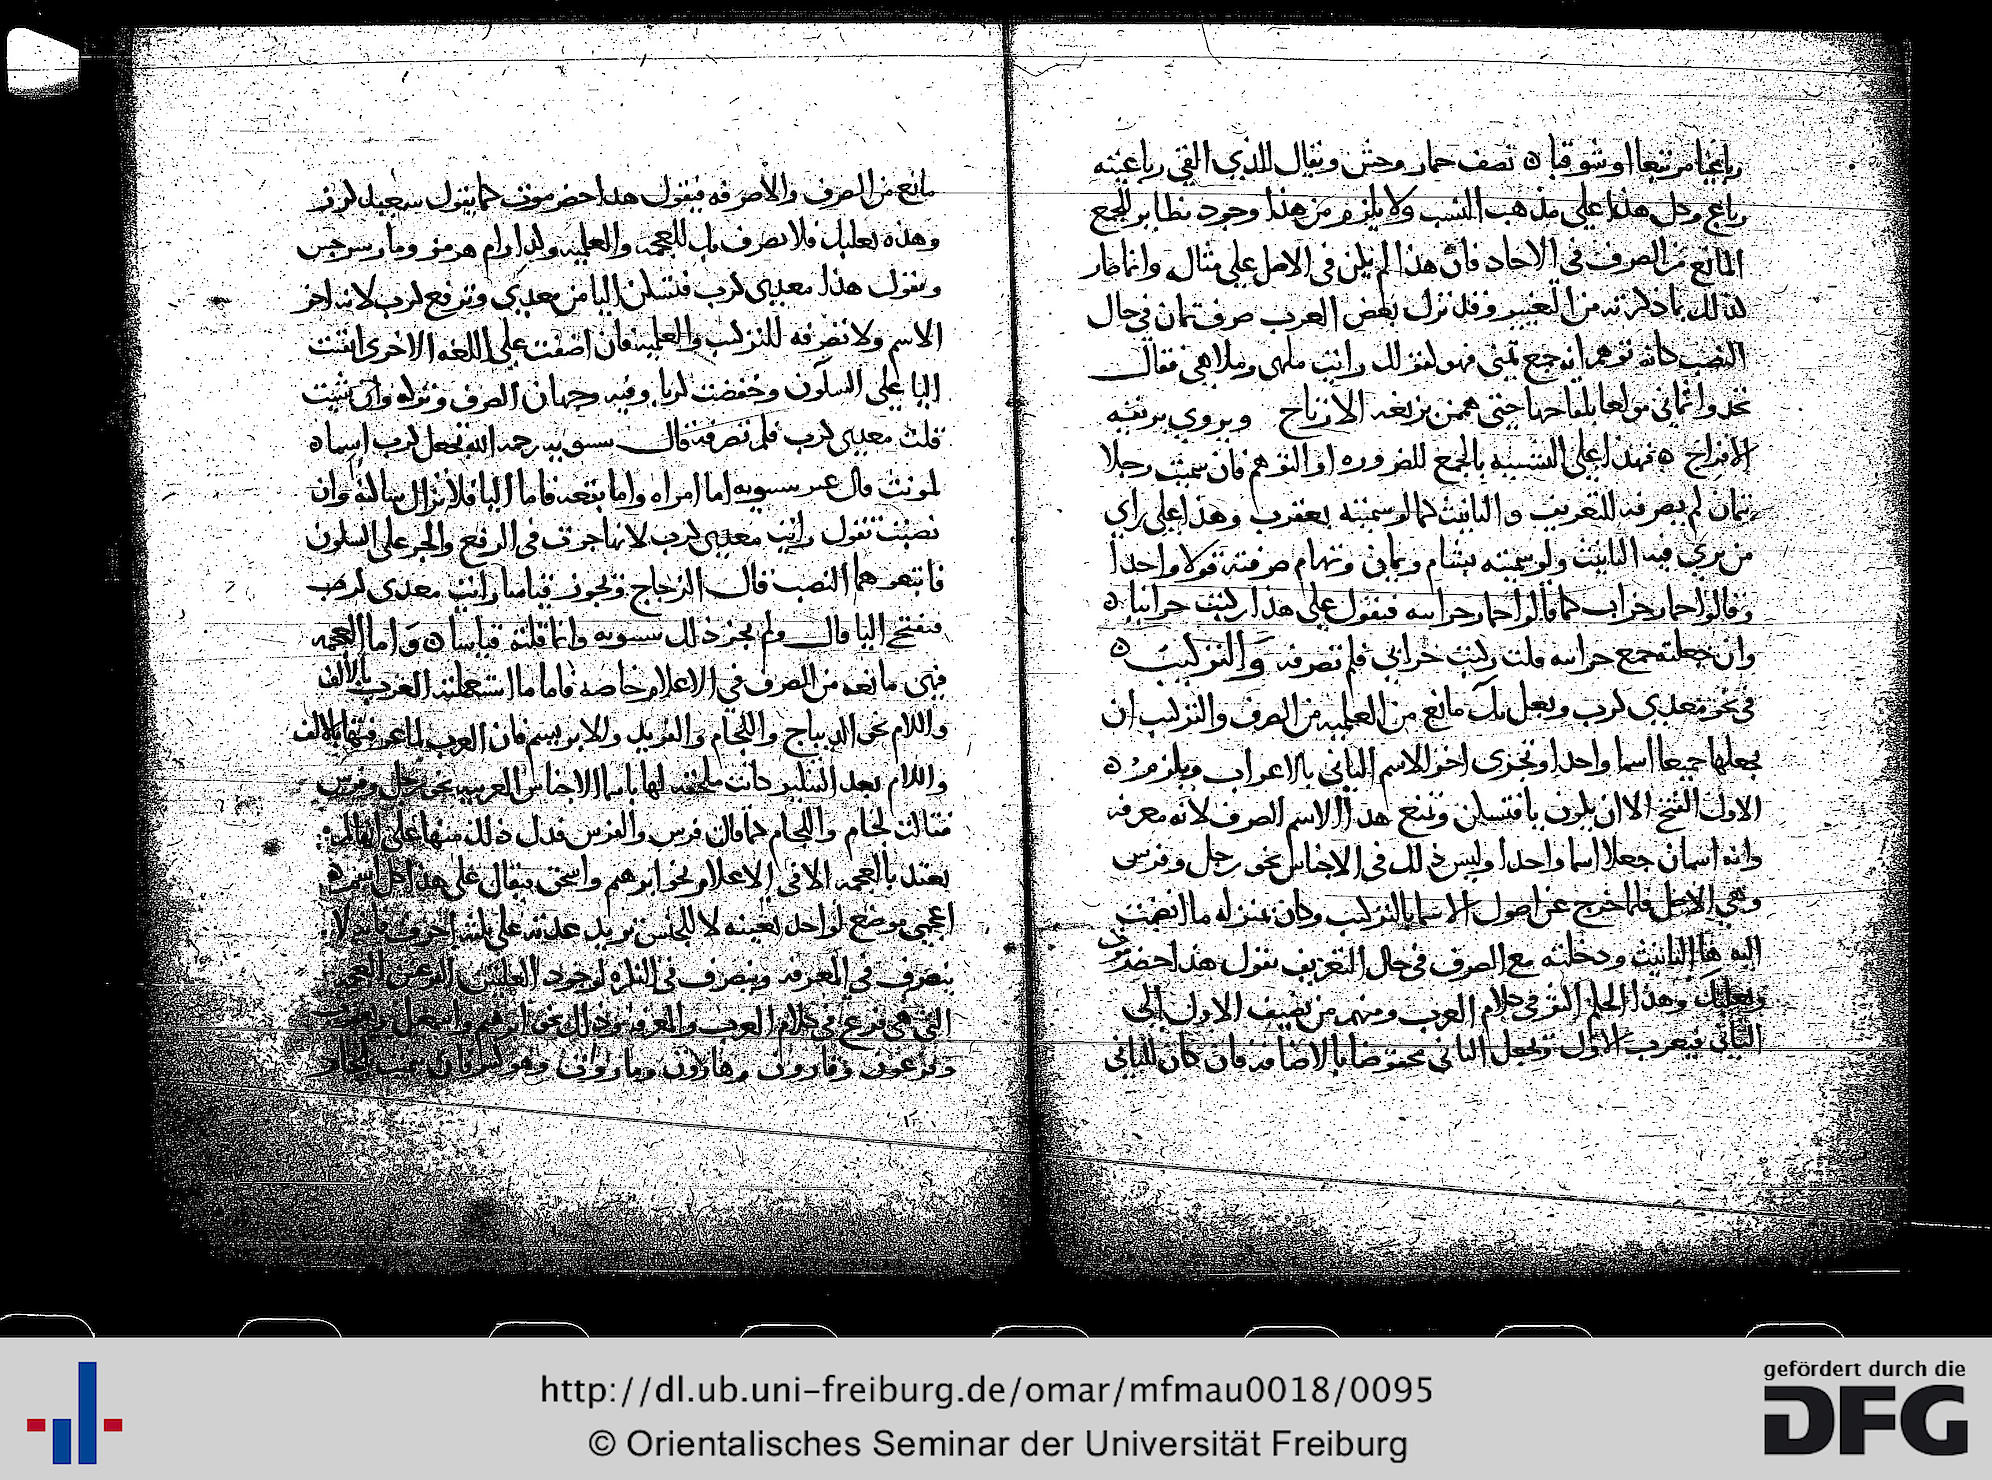 رباعيا مرتبعا او شوقبا ه تصف حمار وحش ويقال للذي القى رباعيته
رباع وكل هذا على مذهب النسب ولا يلزم من هذا وجود نظاير للجمع
المانع من الصرف في الاحاد فان هذا لم يكن في الاصل على مثاله وانما صار
كذلك بما ذكرته من التغيير وقد ترك بعض العرب صرف ثمان في حال
النصب كانه توهم انه جمع ثمنى فهو كقولك رايت ملهى وملاهي فقال
يحدوا ثماني مولعا بلقاحها حتى هممن بزيغه الارتاج ويروي بزيغه
الافراج ه فهذا على التشبيه بالجمع للضروره او التوهم فان سميت رجلا
بثمان لم يصرفه للتعريف والتانيث كما لو سميته بعقرب وهذا على راي
من يرى فيه التانيث ولو سميته بشام ويمان وتهام صرفته قولا واحدا
وقالوا حمار حزاب كما قالوا حمار حزابيه فيقول على هذا ركبت حزابيا ه
وان جعلته جمع حزابيه قلت ركبت حزابي فلم تصرفه والتركيب ه
في نحو معدي كرب وبعلبك مانع من العلميه من الصرف والتركيب ان
يجعلها جميعا اسما واحدا وتجري اخر الاسم الثاني بالاعراب ويلزم ه
الاول الفتح الا ان يكون يا فتسكن وتمنع هذا الاسم الصرف لانه معرفه
وانه اسمان جعلا اسما واحدا وليس ذلك في الاجناس نحو رجل وفرس
وهي الاصل فلما خرج عن اصول الاسما بالتركيب وكان بمنزله ما انضمت
اليه ها التانيث ودخلته مع الصرف في حال التعريف تقول هذا حضرموت
وبعلبك وهذا الحكم الفو في كلام العرب ومنهم من يضيف الاول الى
الثاني فيعرب الاول ويجعل الثاني مخفوضا بالاضافه فان كان للثاني
مانع من الصرف والا صرفه فيقول هذا حضرموت كما يقول سعيد كرز
وهذه بعلبك فلا يصرف باب للعجمه والعلميه وكذا رام هرمز ومار سرجس
وتقول هذا معدي كرب فتسكن اليا من معدي وترفع كرب لانه اخر
الاسم ولا تصرفه للتركيب والعلميه فان اضفت على اللغه الاخرى اثبتت
اليا على السكون وخفضت كربا وفيه وجهان الصرف وتركه وان شيت
قلت معدي كرب فلم تصرفه قال سيبويه رحمه الله تجعل كرب اسما ه
لمونث قال غير سيبويه اما امراه واما بقعه فاما اليا فلا تزال ساكنه وان
نصبت تقول رايت معدي كرب لانها جرت في الرفع والجر على السكون
فاتبعوهما النصب قال الزجاج وتجوز قياسا رايت معدي كرب
فيفتح اليا قال ولم يجز ذلك سيبويه وانما قلته قياسا ه واما العجمه
فهي مانعه من الصرف في الاعلام خاصه فاما ما استعملته العرب بالالف
واللام نحو الديباج واللجام والفريد والابريسم فان العرب لما عرفتها بالالف
واللام بعد التنكير كانت ملحقه لها باسما الاجناس العربيه نحو رجل وفرس
فقالت لجام واللجام كما قال فرس والفرس فدل ذلك منها على انها لم
يعتد بالعجمه الا في الاعلام نحو ابرهيم واسحق فيقال على هذا كل اسم ه
اعجمي موضع لواحد بعينه لا للجنس تزيد عدته على ثلثه احرف فانه لا
ينصرف في المعرفه وينصرف في النكره لوجود العلتين
التي هي فرع في كلام العرب والتعريف وذلك نحو ابرهيم واسمعيل
وفرعون وقارون وهارون وماروت وهو كثير فان سميت
http://dl.ub.uni-freiburg.de/omar/mfmau0018/0095
© Orientalisches Seminar der Universität Freiburg
gefördert durch die
DFG